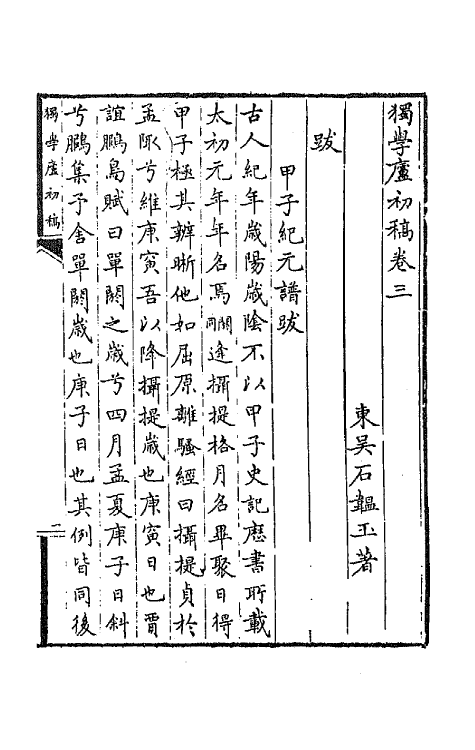 獨學廬初稿卷三
東吳石韞玉著
跋
甲子紀元譜跋
古人紀年歲陽歲陰不以甲子史記歷書所載
太初元年年名焉閼逢攝提格月名畢聚日得
甲子極其辨晰他如屈原離騷經曰攝提貞於
孟陬兮維庚寅吾以降攝提歲也庚寅日也賈
誼鵩鳥賦曰單閼之歲兮四月孟夏庚子日斜
兮鵩集予舍單閼歲也庚子日也其例皆同後
獨學廬初稿
一